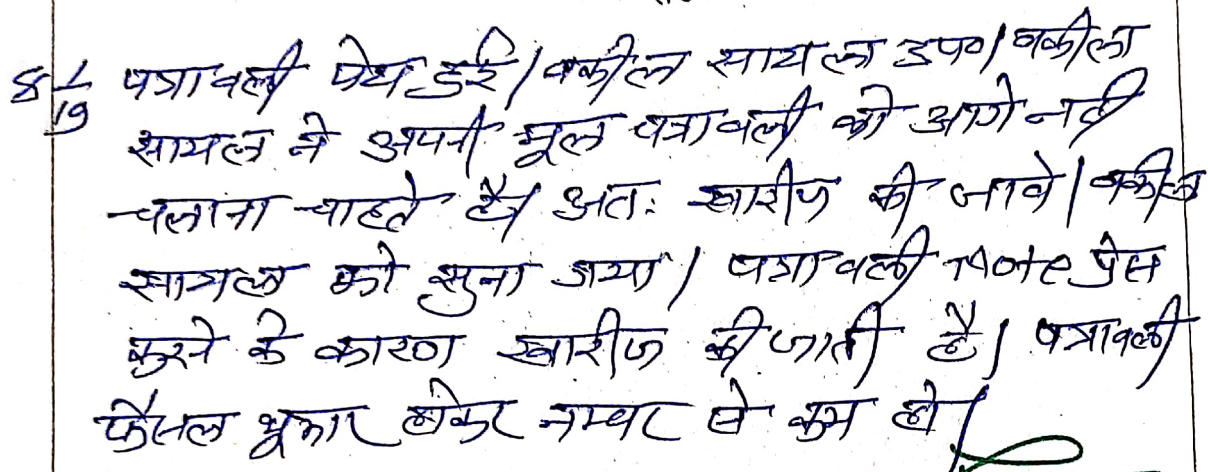 8/1/19 पत्रावली पेश हुई। वकील सायल उप०। वकील
सायल ने अपनी मूल पत्रावली को आगे नही
चलाना चाहते है। अतः खारीज की जावे। वकील
सायल को सुना गया। पत्रावली Note प्रेस
करने के कारण खारीज की जाती है। पत्रावली
फैसल शूमार होकर नम्बर से कम हो।